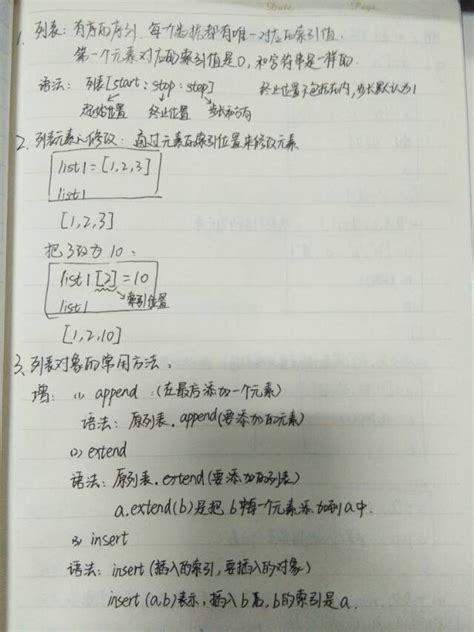 1. 列表：有序的序列，每个数据都有唯一对应的索引值.
第一个元素对应的索引值是0，和字符串是一样的.
语法：列表[start：stop：step] 终止位置不包括在内，步长默认为1
起始位置 终止位置 步长和方向
2. 列表元素的修改：通过元素的索引位置来修改元素
list1 = [1,2,3]
list1
[1,2,3]
把3改为10：
list1[2] = 10
list1 索引位置
[1,2,10]
3、列表对象的常用方法：
增：(1) append：(在最后添加一个元素)
语法：原列表．append(要添加的元素)
(2) extend
语法：原列表．extend(要添加的列表)
a.extend(b)是把b中每一个元素添加到a中.
(3) insert
语法：insert(插入的索引，要插入的对象)
insert(a,b)表示，插入b后，b的索引是a.